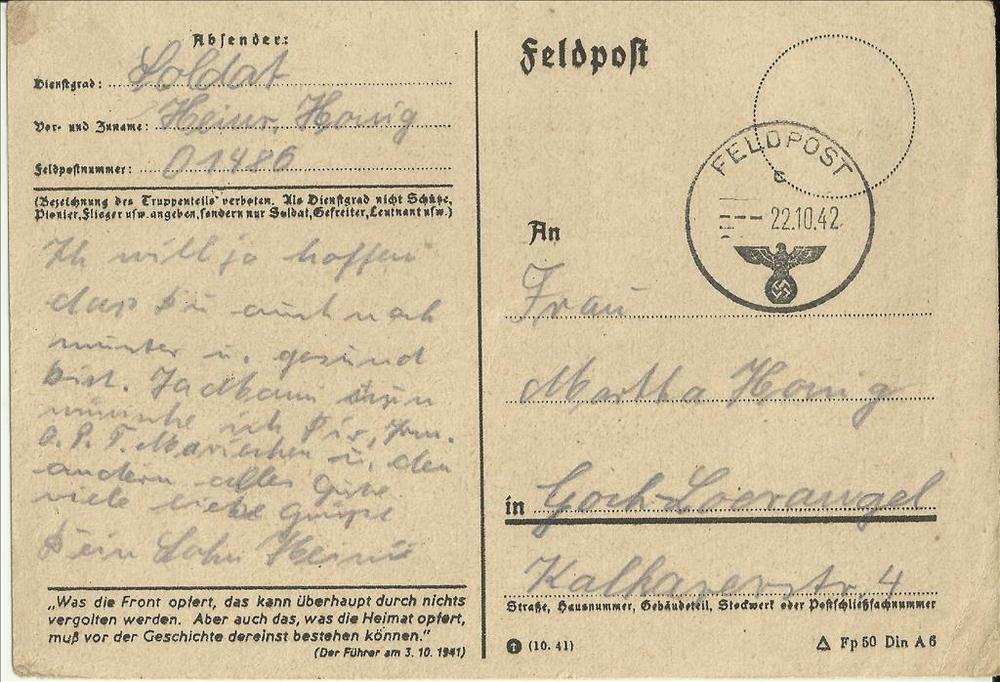 Absender:
Dienstgrad: Soldat
Vor- und Zuname: Heinr. Honig
Feldpostnummer: 01486
(Bezeichnung des Truppenteils verboten. Als Dienstgrad nicht Schütze,
Pionier, Flieger usw. angeben, sondern nur Soldat, Gefreiter, Leutnant usw.)
Ich will ja hoffen
das Du auch noch
munter u. gesund
bist. Ja Mam nun
wünsche ich Dir,
O. P. T. Mariechen u. den
andern alles Gute
viele liebe Grüße
Dein Sohn Heini
„Was die Front opfert, das kann überhaupt durch nichts
vergolten werden. Aber auch das, was die Heimat opfert,
muß vor der Geschichte dereinst bestehen können.“
(Der Führer am 3. 10. 1941)
Feldpost
FELDPOST
c
22.10.42
An
Frau
Martha Honig
in Goch-
Straße, Hausnummer, Gebäudeteil, Stockwerk oder Postschließfachnummer
(10. 41)
Fp 50 Din A 6